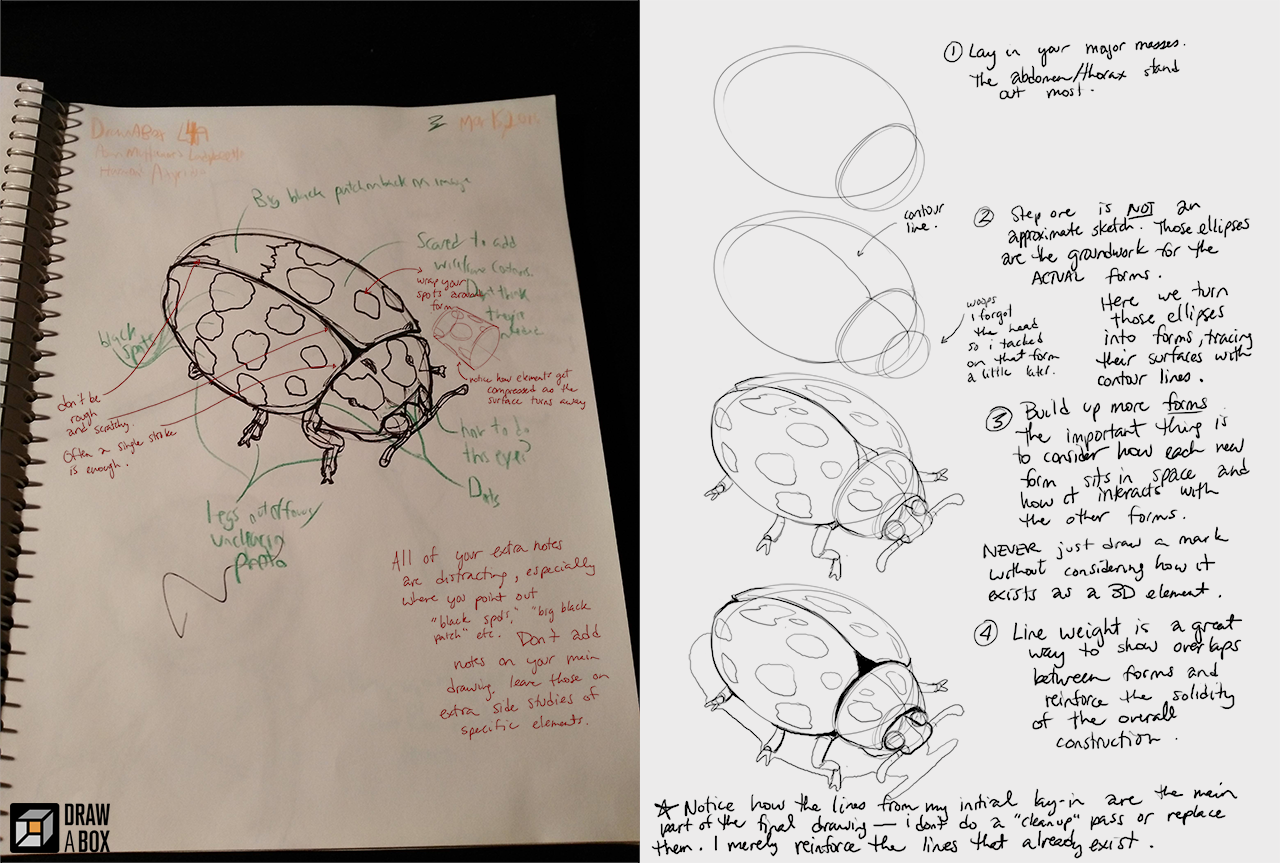 DrawABox L4A
3
Mar 15, 201
Big black patch on back in image
Scared to add
wireframe contours.
Don't think
they're
wrap your
spots around
form
black
spots
notice how elements get
compressed as the
surface turns away
don't be
rough
and scratchy.
Often a single stroke
is enough.
how to do
this eye?
Dots
Legs not of focus
unclear in
photo
All of your extra notes
are distracting, especially
where you point out
"black spots," "big black
patch" etc. Don't add
notes on your main
drawing, leave those on
extra side studies of
specific elements.
DRAW
A BOX
① Lay in your major masses.
The abdomen/thorax stand
out most.
contour
line.
② Step one is NOT an
approximate sketch. Those ellipses
are the groundwork for the
ACTUAL forms.
Here we turn
those ellipses
into forms, tracing
their surfaces with
contour lines.
woops
i forgot
the head
so i tacked
on that form
a little later.
③ Build up more forms
the important thing is
to consider how each new
form sits in space and
how it interacts with
the other forms.
NEVER just draw a mark
without considering how it
exists as a 3D element.
④ Line weight is a great
way to show overlaps
between forms and
reinforce the solidity
of the overall
construction.
☆ Notice how the lines from my initial lay-in are the main
part of the final drawing — i don't do a "cleanup" pass or replace
them. I merely reinforce the lines that already exist.